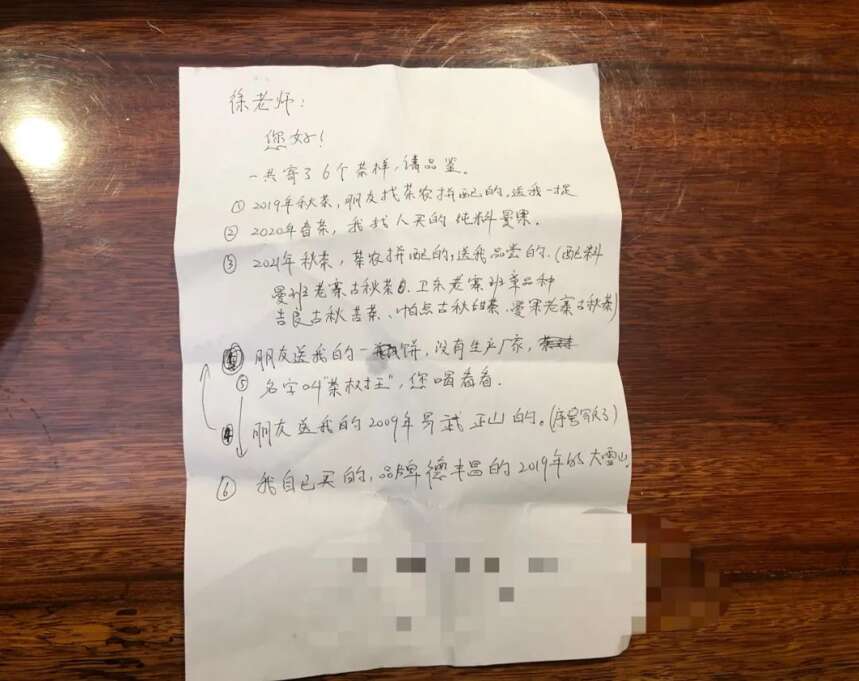 徐老师：
您好！
一共寄了6个茶样，请品鉴。
① 2019年秋茶，朋友找茶农拼配的，送我一提
② 2020年春茶，我找人买的纯料曼果。
③ 2021年秋茶，茶农拼配的，送我品尝的.(配料
曼班老寨古秋茶、卫东老寨班章品种
吉良古秋苦茶、帕点古秋甜茶、曼果老寨古秋茶)
朋友送我的一饼，没有生产厂家，
⑤ 名字叫“茶权柱王”，您喝着看.
④ 朋友送我的2009年易武正山的。(序号写反了)
⑥ 我自己买的，品牌德丰昌的2019年的大雪山.